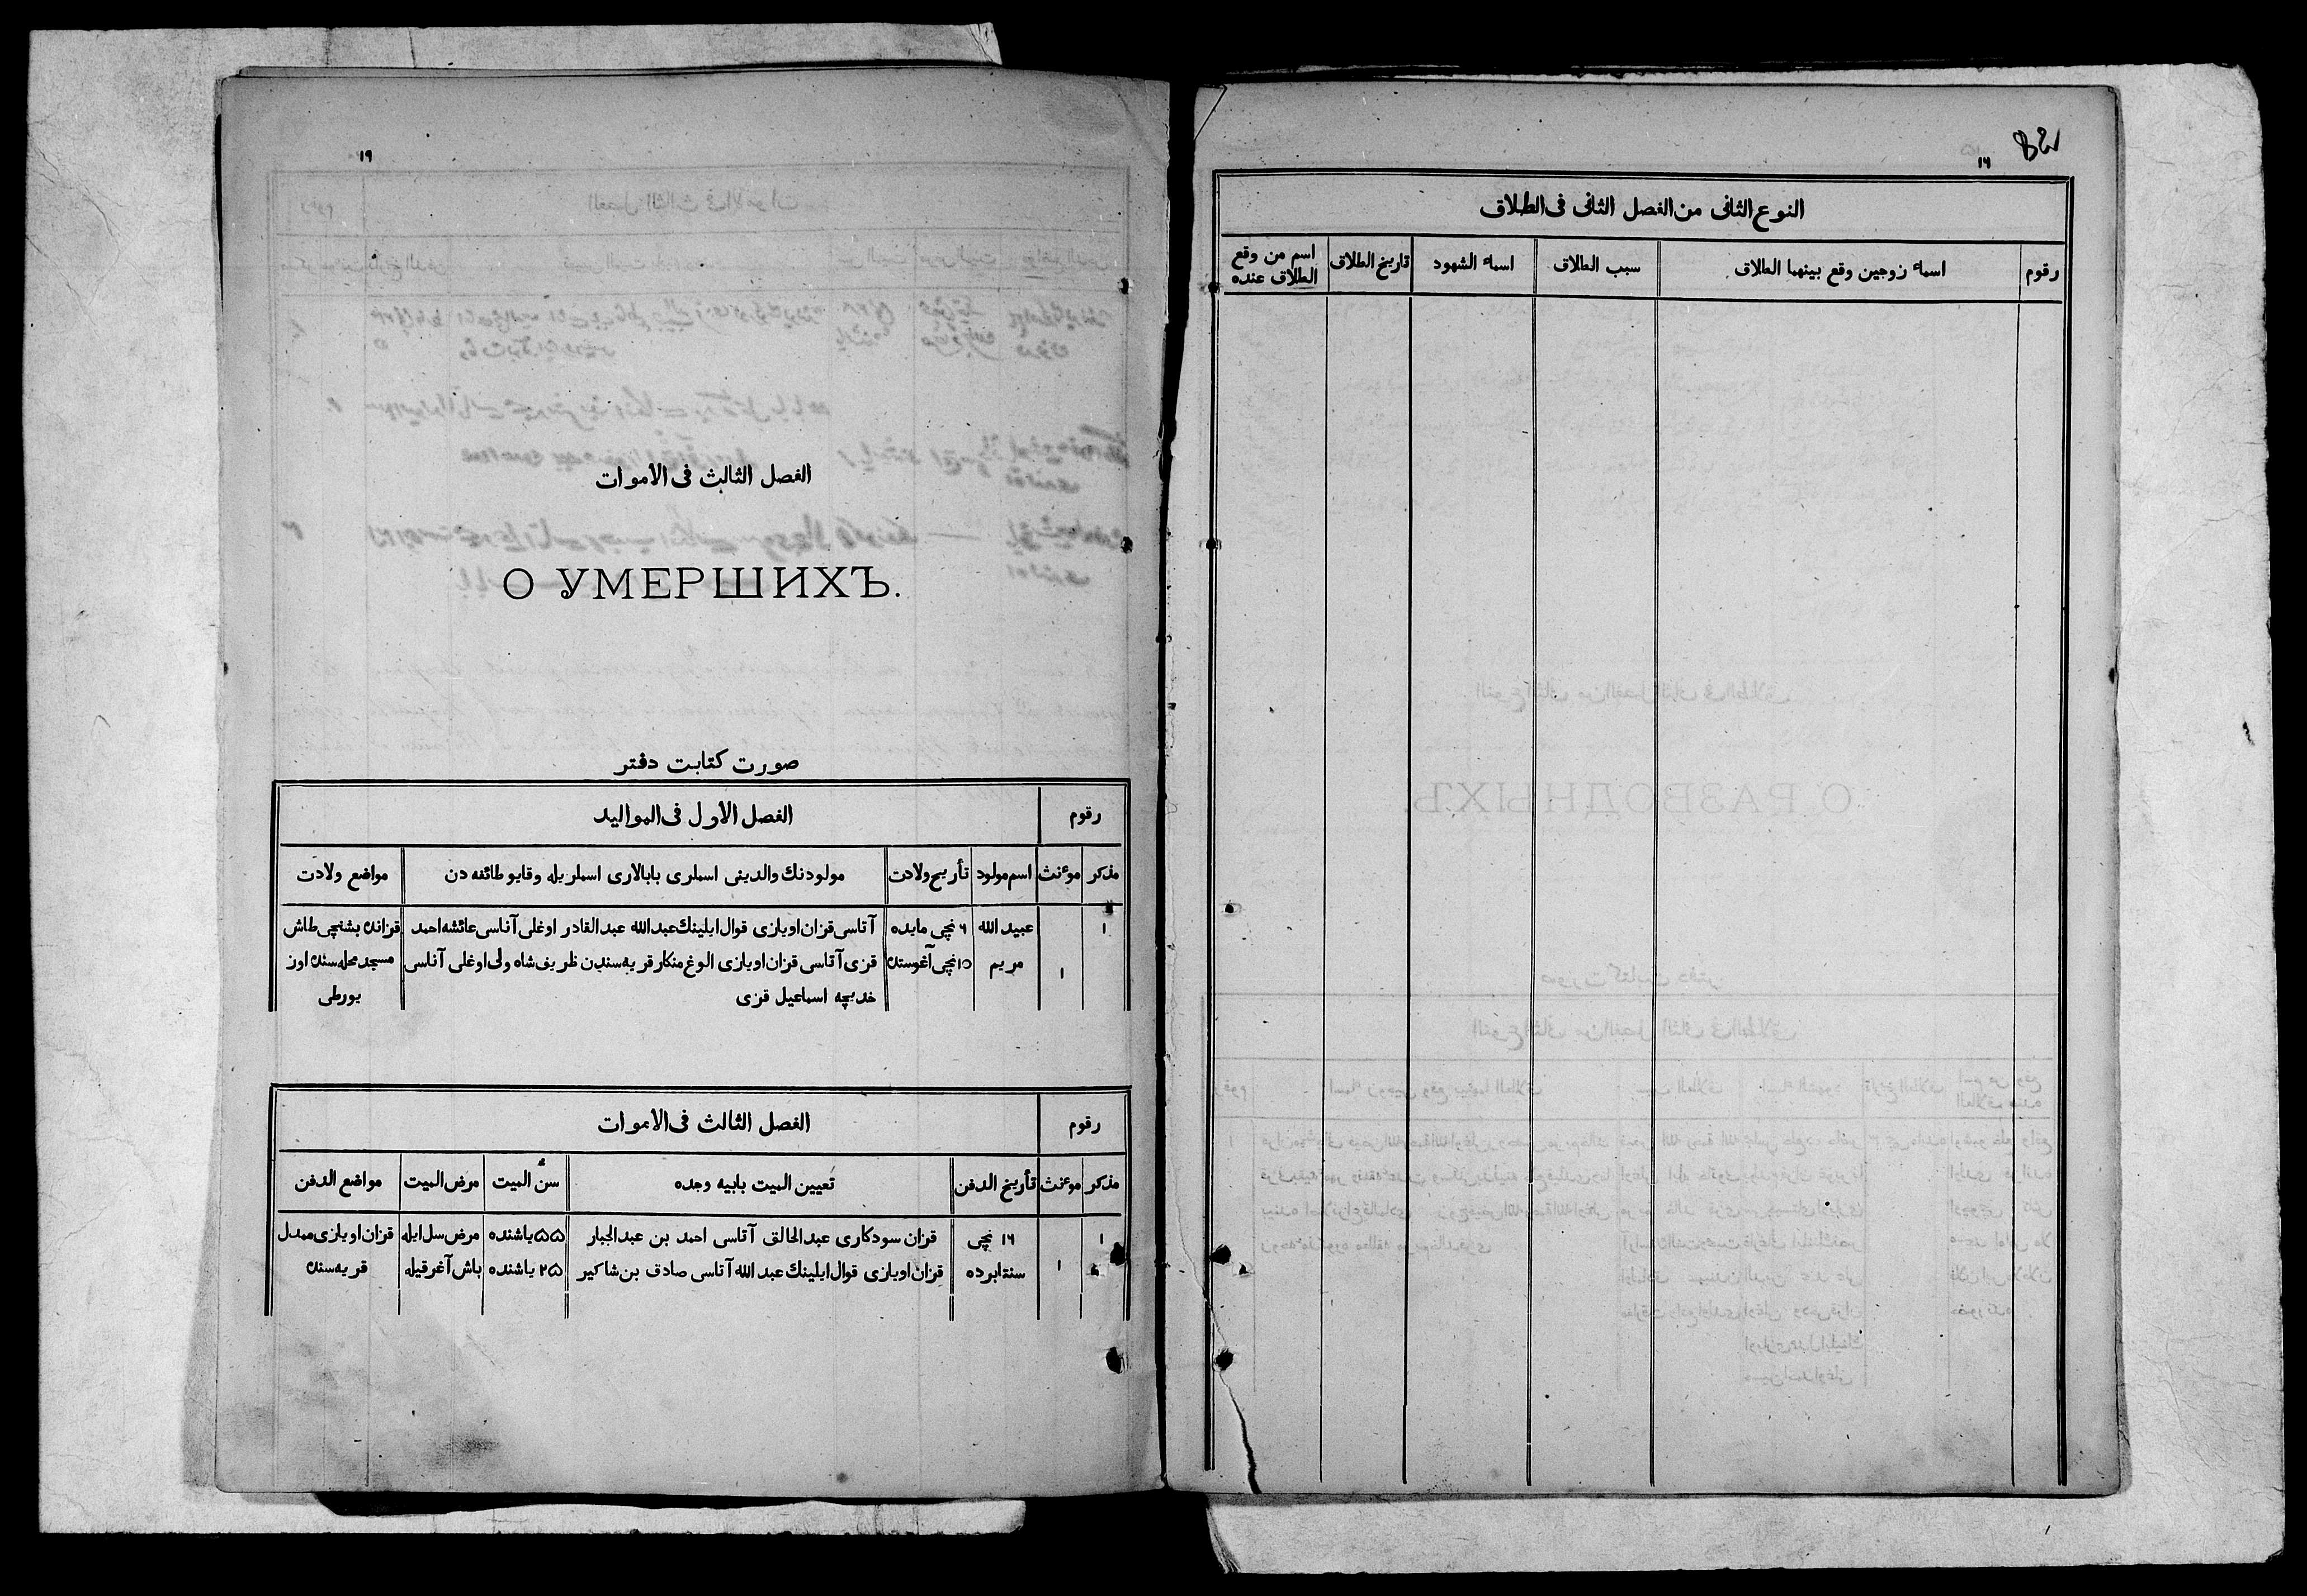 82
١٦
النوع الثانى من الفصل الثانى فى الطلاق
رقوم
اسماء زوجين وقع بينهما الطلاق
سبب الطلاق
اسماء الشهود
تاريخ الطلاق
اسم من وقع
الطلاق عنده
١٩
الفصل الثالث فى الاموات
О УМЕРШИХЪ.
صورت كتابت دفتر
رقوم
الفصل الاول فى المواليد
مذكر
موءنث
اسم مولود
تأريح ولادت
مولودنك والدينى اسملرى بابالارى اسملريله وقايو طائفه دن
مواضع ولادت
١ عبيد الله ٦ نچى مايده آتاسى قزان اويازى قوال ايلينك عبد الله عبد القادر اوغلى آناسى عائشه احمد قزانده بشنچى طاش
١ مريم ١٥ نچى آغوستده قزى آتاسى قزان اويازى الوغ منكار قريه سندن ظريف شاه ولى اوغلى آناسى مسجد محله سنده اوز
خديجه اسماعيل قزى يورطى
رقوم
الفصل الثالث فى الاموات
مذكر
موءنث
تأريخ الدفن
تعيين الميت بابيه وجده
سن الميت
مرض الميت
مواضع الدفن
١ ١٦ نچى قزان سودكارى عبد الخالق آتاسى احمد بن عبد الجبار ٥٥ ياشنده مرض سل ايله قزان اويازى ممدل
١ سنتابرده قزان اويازى قوال ايلينك عبد الله آتاسى صادق بن شاكير ٢٥ ياشنده باش آغرقيله قريه سنده